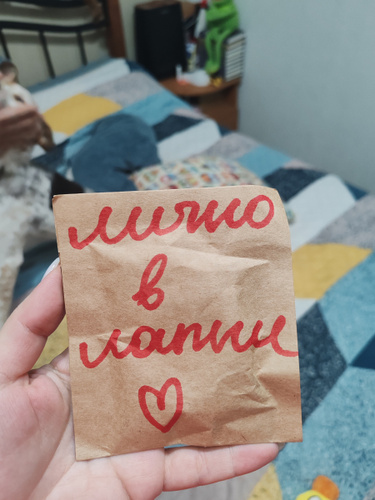 лично
в
лапки
♡